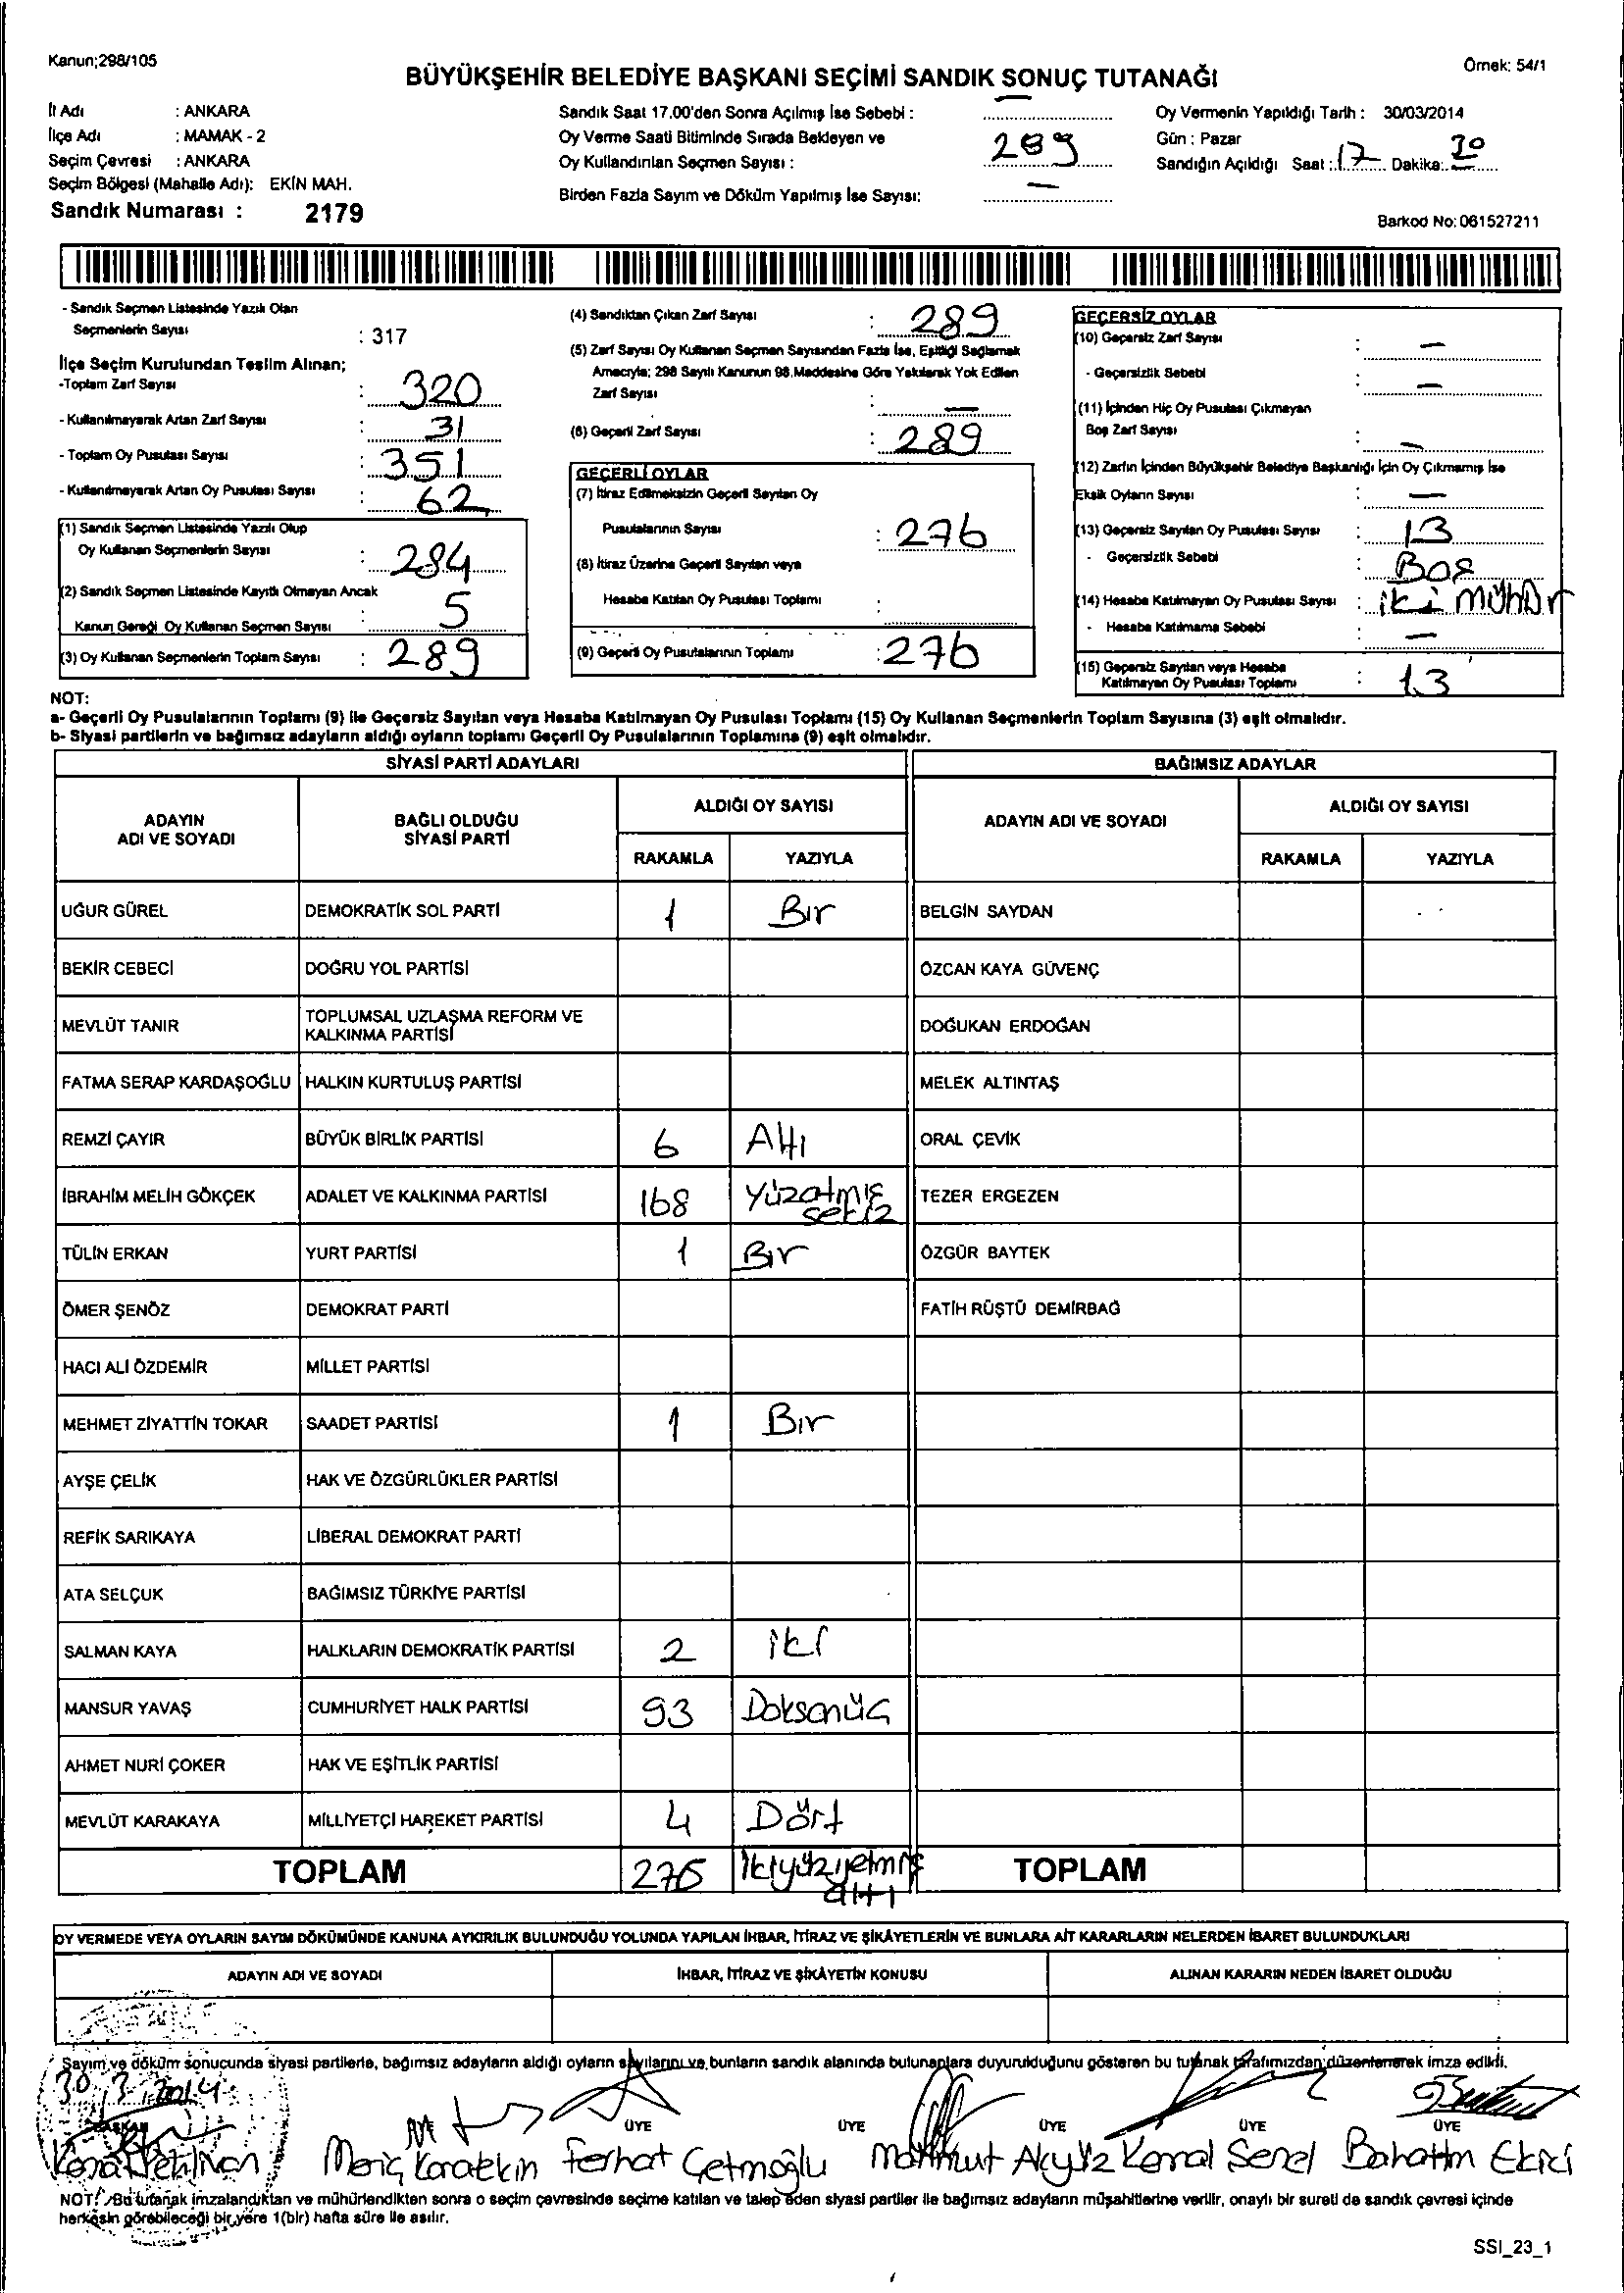 Kanun;298/105
Örnek: 54/1
BÜYÜKŞEHİR BELEDİYE BAŞKANI SEÇİMİ SANDIK SONUÇ TUTANAĞI
İl Adı : ANKARA
İlçe Adı : MAMAK - 2
Seçim Çevresi : ANKARA
Seçim Bölgesi (Mahalle Adı): EKİN MAH.
Sandık Numarası : 2179
Sandık Saat 17.00'den Sonra Açılmış İse Sebebi : —
Oy Verme Saati Bitiminde Sırada Bekleyen ve
Oy Kullandırılan Seçmen Sayısı : 289
Birden Fazla Sayım ve Döküm Yapılmış İse Sayısı: —
Oy Vermenin Yapıldığı Tarih : 30/03/2014
Gün : Pazar
Sandığın Açıldığı Saat : 17 Dakika:
Barkod No: 061527211
- Sandık Seçmen Listesinde Yazılı Olan
Seçmenlerin Sayısı : 317
İlçe Seçim Kurulundan Teslim Alınan;
-Toplam Zarf Sayısı : 320
- Kullanılmayarak Artan Zarf Sayısı : 31
- Toplam Oy Pusulası Sayısı : 351
- Kullanılmayarak Artan Oy Pusulası Sayısı : 62
(1) Sandık Seçmen Listesinde Yazılı Olup
Oy Kullanan Seçmenlerin Sayısı : 284
(2) Sandık Seçmen Listesinde Kayıtlı Olmayan Ancak
Kanun Gereği Oy Kullanan Seçmen Sayısı : 5
(3) Oy Kullanan Seçmenlerin Toplam Sayısı : 289
(4) Sandıktan Çıkan Zarf Sayısı : 289
(5) Zarf Sayısı Oy Kullanan Seçmen Sayısından Fazla İse, Eşitliği Sağlamak
Amacıyla; 298 Sayılı Kanunun 98.Maddesine Göre Yakılarak Yok Edilen
Zarf Sayısı : —
(6) Geçerli Zarf Sayısı : 289
GEÇERLİ OYLAR
(7) İtiraz Edilmeksizin Geçerli Sayılan Oy
Pusulalarının Sayısı : 276
(8) İtiraz Üzerine Geçerli Sayılan veya
Hesaba Katılan Oy Pusulası Toplamı :
(9) Geçerli Oy Pusulalarının Toplamı : 276
GEÇERSİZ OYLAR
(10) Geçersiz Zarf Sayısı : —
- Geçersizlik Sebebi : —
(11) İçinden Hiç Oy Pusulası Çıkmayan
Boş Zarf Sayısı : —
(12) Zarfın İçinden Büyükşehir Belediye Başkanlığı İçin Oy Çıkmamış İse
Eksik Oyların Sayısı : —
(13) Geçersiz Sayılan Oy Pusulası Sayısı : 13
- Geçersizlik Sebebi : Boş
(14) Hesaba Katılmayan Oy Pusulası Sayısı : iki mühür
- Hesaba Katılmama Sebebi : —
(15) Geçersiz Sayılan veya Hesaba
Katılmayan Oy Pusulası Toplamı : 13
NOT:
a- Geçerli Oy Pusulalarının Toplamı (9) ile Geçersiz Sayılan veya Hesaba Katılmayan Oy Pusulası Toplamı (15) Oy Kullanan Seçmenlerin Toplam Sayısına (3) eşit olmalıdır.
b- Siyasi partilerin ve bağımsız adayların aldığı oyların toplamı Geçerli Oy Pusulalarının Toplamına (9) eşit olmalıdır.
SİYASİ PARTİ ADAYLARI BAĞIMSIZ ADAYLAR
ADAYIN ADI VE SOYADI BAĞLI OLDUĞU SİYASİ PARTİ ALDIĞI OY SAYISI ADAYIN ADI VE SOYADI ALDIĞI OY SAYISI
RAKAMLA YAZIYLA RAKAMLA YAZIYLA
UĞUR GÜREL DEMOKRATİK SOL PARTİ 1 Bir BELGİN SAYDAN
BEKİR CEBECİ DOĞRU YOL PARTİSİ ÖZCAN KAYA GÜVENÇ
MEVLÜT TANIR TOPLUMSAL UZLAŞMA REFORM VE KALKINMA PARTİSİ DOĞUKAN ERDOĞAN
FATMA SERAP KARDAŞOĞLU HALKIN KURTULUŞ PARTİSİ MELEK ALTINTAŞ
REMZİ ÇAYIR BÜYÜK BİRLİK PARTİSİ 6 Altı ORAL ÇEVİK
İBRAHİM MELİH GÖKÇEK ADALET VE KALKINMA PARTİSİ 168 Yüzatmış sekiz TEZER ERGEZEN
TÜLİN ERKAN YURT PARTİSİ 1 Bir ÖZGÜR BAYTEK
ÖMER ŞENÖZ DEMOKRAT PARTİ FATİH RÜŞTÜ DEMİRBAĞ
HACI ALİ ÖZDEMİR MİLLET PARTİSİ
MEHMET ZİYATTİN TOKAR SAADET PARTİSİ 1 Bir
AYŞE ÇELİK HAK VE ÖZGÜRLÜKLER PARTİSİ
REFİK SARIKAYA LİBERAL DEMOKRAT PARTİ
ATA SELÇUK BAĞIMSIZ TÜRKİYE PARTİSİ
SALMAN KAYA HALKLARIN DEMOKRATİK PARTİSİ 2 iki
MANSUR YAVAŞ CUMHURİYET HALK PARTİSİ 93 Doksanüç
AHMET NURİ ÇOKER HAK VE EŞİTLİK PARTİSİ
MEVLÜT KARAKAYA MİLLİYETÇİ HAREKET PARTİSİ 4 Dört
TOPLAM 276 İkiyüzyetmiş altı TOPLAM
OY VERMEDE VEYA OYLARIN SAYIM DÖKÜMÜNDE KANUNA AYKIRILIK BULUNDUĞU YOLUNDA YAPILAN İHBAR, İTİRAZ VE ŞİKÂYETLERİN VE BUNLARA AİT KARARLARIN NELERDEN İBARET BULUNDUKLARI
ADAYIN ADI VE SOYADI İHBAR, İTİRAZ VE ŞİKÂYETİN KONUSU ALINAN KARARIN NEDEN İBARET OLDUĞU
Sayım ve döküm sonucunda siyasi partilerle, bağımsız adayların aldığı oyların sayılarını ve bunların sandık alanında bulunanlara duyurulduğunu gösteren bu tutanak tarafımızdan düzenlenerek imza edildi.
30.3.2014
BAŞKAN ÜYE ÜYE ÜYE ÜYE ÜYE ÜYE
Meriç Karatekin Ferhat Çetmoğlu Mahmut Akyüz Kemal Şenel Bahattin Ekici
NOT: Bu tutanak imzalandıktan ve mühürlendikten sonra o seçim çevresinde seçime katılan ve talep eden siyasi partiler ile bağımsız adayların müşahitlerine verilir, onaylı bir sureti de sandık çevresi içinde
herkesin görebileceği bir yere 1(bir) hafta süre ile asılır.
SSI_23_1